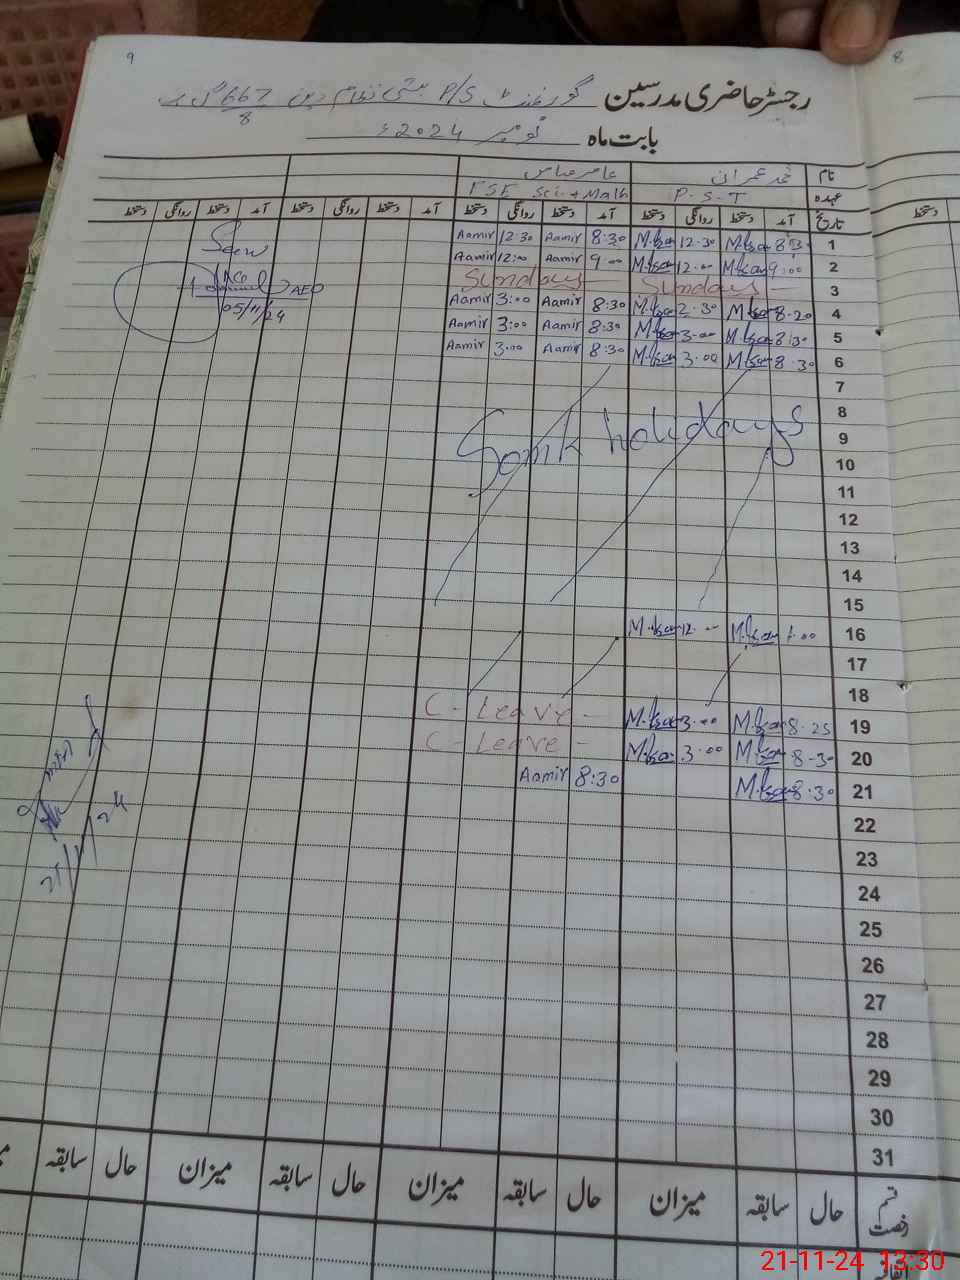 9
8
رجسٹر حاضری مدرسین گورنمنٹ P/S بستی نظام دین 667
8
بابت ماہ نومبر 2024ء
نام محمد عمران عامر عباس
عہدہ P.S.T ESE Sci+Math
تاریخ آمد دستخط روانگی دستخط آمد دستخط روانگی دستخط آمد دستخط روانگی دستخط آمد دستخط روانگی دستخط
1 8:30 12.30 8:30 Aamir 12:30 Aamir
2 9:00 12.00 9:00 Aamir 12:00 Aamir
3 Sundays Sundays
4 8-20 2.30 8:30 Aamir 3:00 Aamir
5 8:30 3.00 8:30 Aamir 3:00 Aamir
6 8.30 3.00 8:30 Aamir 3.00 Aamir
Seen
AEO
05/11/24
7
8
Somk holidays
9
10
11
12
13
14
15
16 12
17
18
19 8.25 3.00 C-Leave-
20 8-30 3.00 C-Leave-
21 8.30 8:30 Aamir
22
23
24
25
26
27
28
29
30
31
قسم رخصت حال سابقہ میزان حال سابقہ میزان حال سابقہ میزان حال سابقہ
اتفاقیہ
21-11-24 13:30